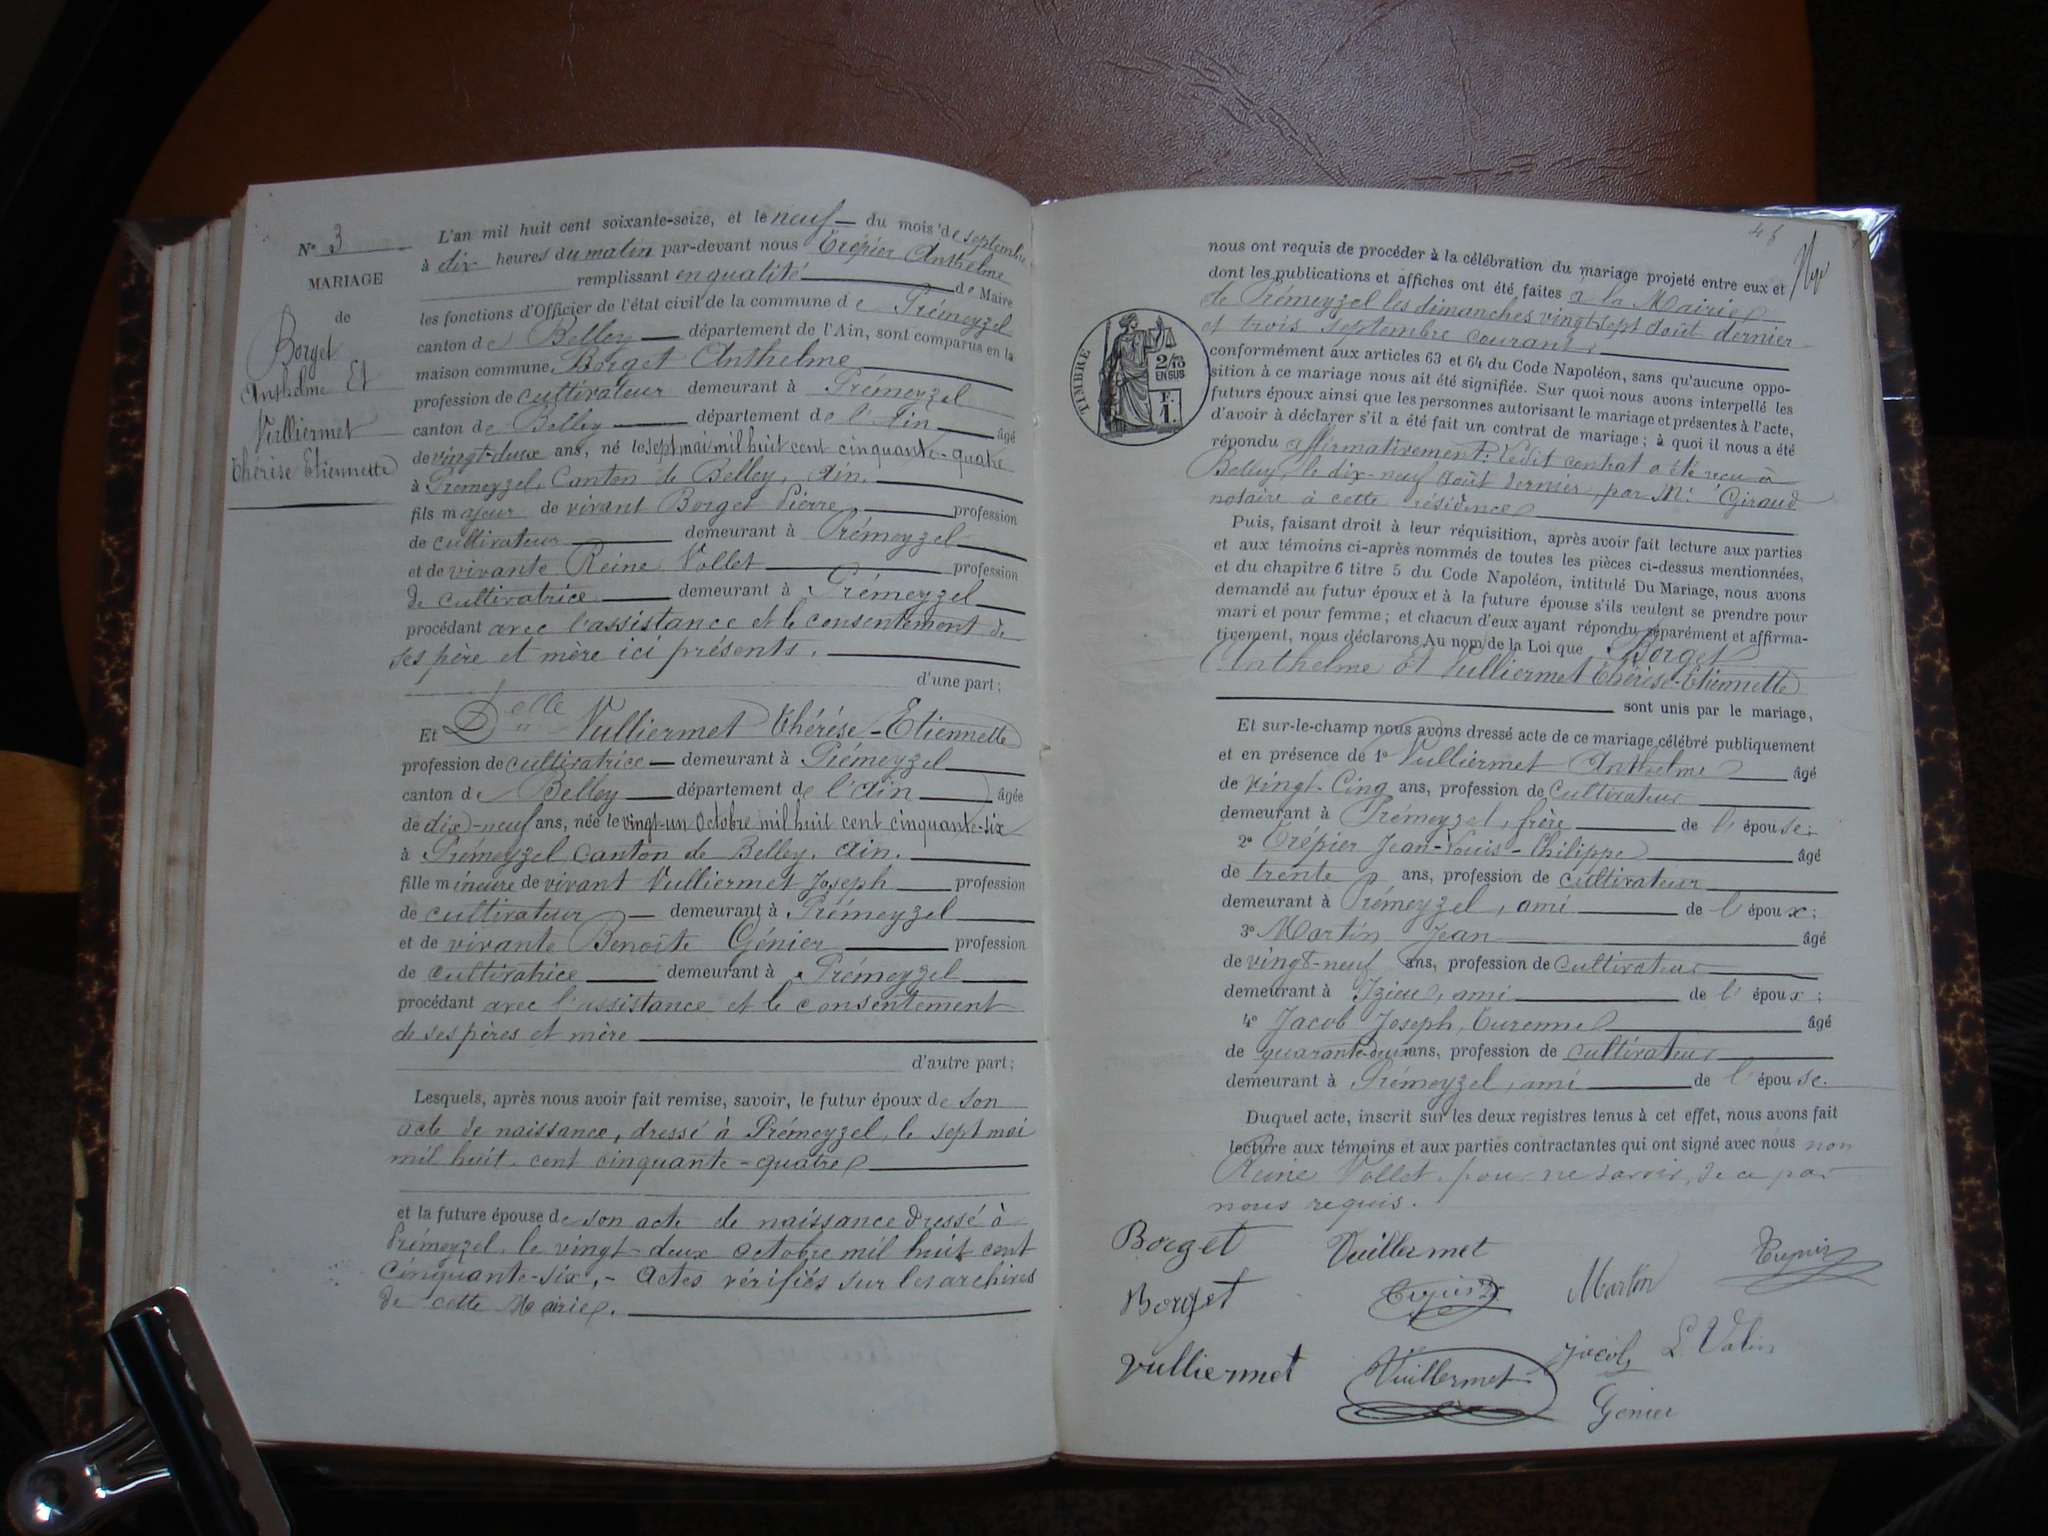 N° 3
MARIAGE
de
Borget
Anthelme Et
Vulliermet
Thérèse Etiennette
L'an mil huit cent soixante-seize, et le neuf du mois de septembre
à dix heures du matin par-devant nous Trépier Anthelme
remplissant en qualité de Maire
les fonctions d'Officier de l'état civil de la commune de Prémeyzel
canton de Belley département de l'Ain, sont comparus en la
maison commune Borget Anthelme
profession de cultivateur demeurant à Prémeyzel
canton de Belley département de l'Ain âgé
de vingt-deux ans, né le sept mai mil huit cent cinquante-quatre
à Prémeyzel, Canton de Belley, Ain.
fils majeur de vivant Borget Pierre profession
de cultivateur demeurant à Prémeyzel
et de vivante Reine Vollet profession
de cultivatrice demeurant à Prémeyzel
procédant avec l'assistance et le consentement de
ses père et mère ici présents.
d'une part;
Et Delle Vulliermet Thérèse-Etiennette
profession de cultivatrice demeurant à Prémeyzel
canton de Belley département de l'Ain âgée
de dix-neuf ans, née le vingt-un Octobre mil huit cent cinquante-six
à Prémeyzel Canton de Belley, Ain.
fille mineure de vivant Vulliermet Joseph profession
de cultivateur demeurant à Prémeyzel
et de vivante Benoîte Génier profession
de cultivatrice demeurant à Prémeyzel
procédant avec l'assistance et le consentement
de ses pères et mère
d'autre part;
Lesquels, après nous avoir fait remise, savoir, le futur époux de son
acte de naissance, dressé à Prémeyzel, le sept mai
mil huit-cent cinquante-quatre
et la future épouse de son acte de naissance dressé à
Prémeyzel, le vingt-deux octobre mil huit cent
cinquante-six, - Actes vérifiés sur les archives
de cette Mairie.
48
nous ont requis de procéder à la célébration du mariage projeté entre eux et
dont les publications et affiches ont été faites à la Mairie
de Prémeyzel les dimanches vingt-sept août dernier
et trois septembre courant,
conformément aux articles 63 et 64 du Code Napoléon, sans qu'aucune oppo-
sition à ce mariage nous ait été signifiée. Sur quoi nous avons interpellé les
futurs époux ainsi que les personnes autorisant le mariage et présentes à l'acte,
d'avoir à déclarer s'il a été fait un contrat de mariage; à quoi il nous a été
répondu affirmativement: Ledit contrat a été reçu à
Belley, le dix-neuf août dernier, par Me Giraud
notaire à cette résidence
TIMBRE
2/10
EN SUS
F.
1.
Puis, faisant droit à leur réquisition, après avoir fait lecture aux parties
et aux témoins ci-après nommés de toutes les pièces ci-dessus mentionnées,
et du chapitre 6 titre 5 du Code Napoléon, intitulé Du Mariage, nous avons
demandé au futur époux et à la future épouse s'ils veulent se prendre pour
mari et pour femme; et chacun d'eux ayant répondu séparément et affirma-
tivement, nous déclarons Au nom de la Loi que Borget
Anthelme Et Vulliermet Thérèse-Etiennette
sont unis par le mariage,
Et sur-le-champ nous avons dressé acte de ce mariage célébré publiquement
et en présence de 1° Vulliermet Anthelme âgé
de vingt-Cinq ans, profession de cultivateur
demeurant à Prémeyzel, frère de l'épouse;
2° Trépier Jean-Louis-Philippe âgé
de trente ans, profession de cultivateur
demeurant à Prémeyzel, ami de l'époux;
3° Martin Jean âgé
de vingt-neuf ans, profession de cultivateur
demeurant à Izieu, ami de l'époux;
4° Jacob Joseph, Turenne âgé
de quarante-deux ans, profession de cultivateur
demeurant à Prémeyzel, ami de l'épouse.
Duquel acte, inscrit sur les deux registres tenus à cet effet, nous avons fait
lecture aux témoins et aux parties contractantes qui ont signé avec nous non
Reine Vollet pour ne savoir, de ce par
nous requis.
Borget Vuillermet Trepier
Borget Trepier Martin
Vulliermet Vuillermet Jacob
Genier